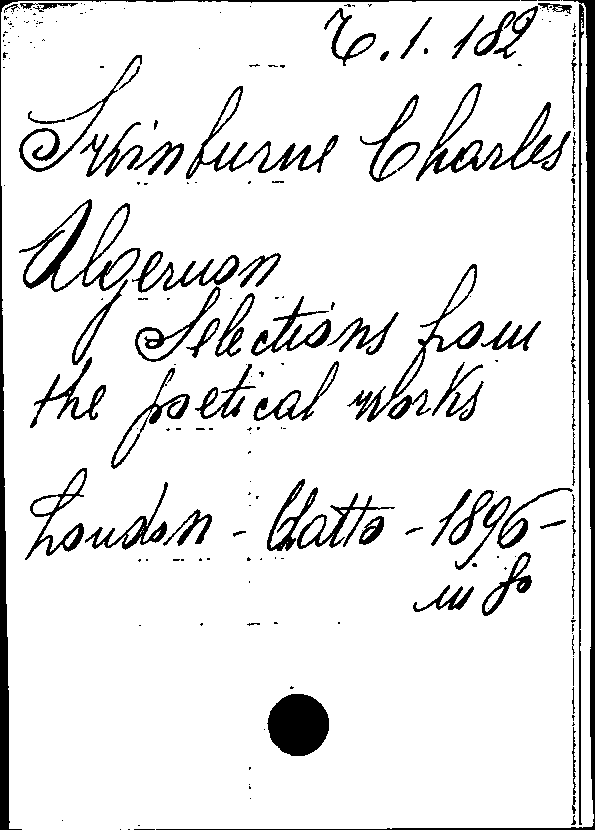 7.1.182
Swinburne Charles
Algernon
Selections from
the poetical works
London - Chatto - 1896 -
in 8º